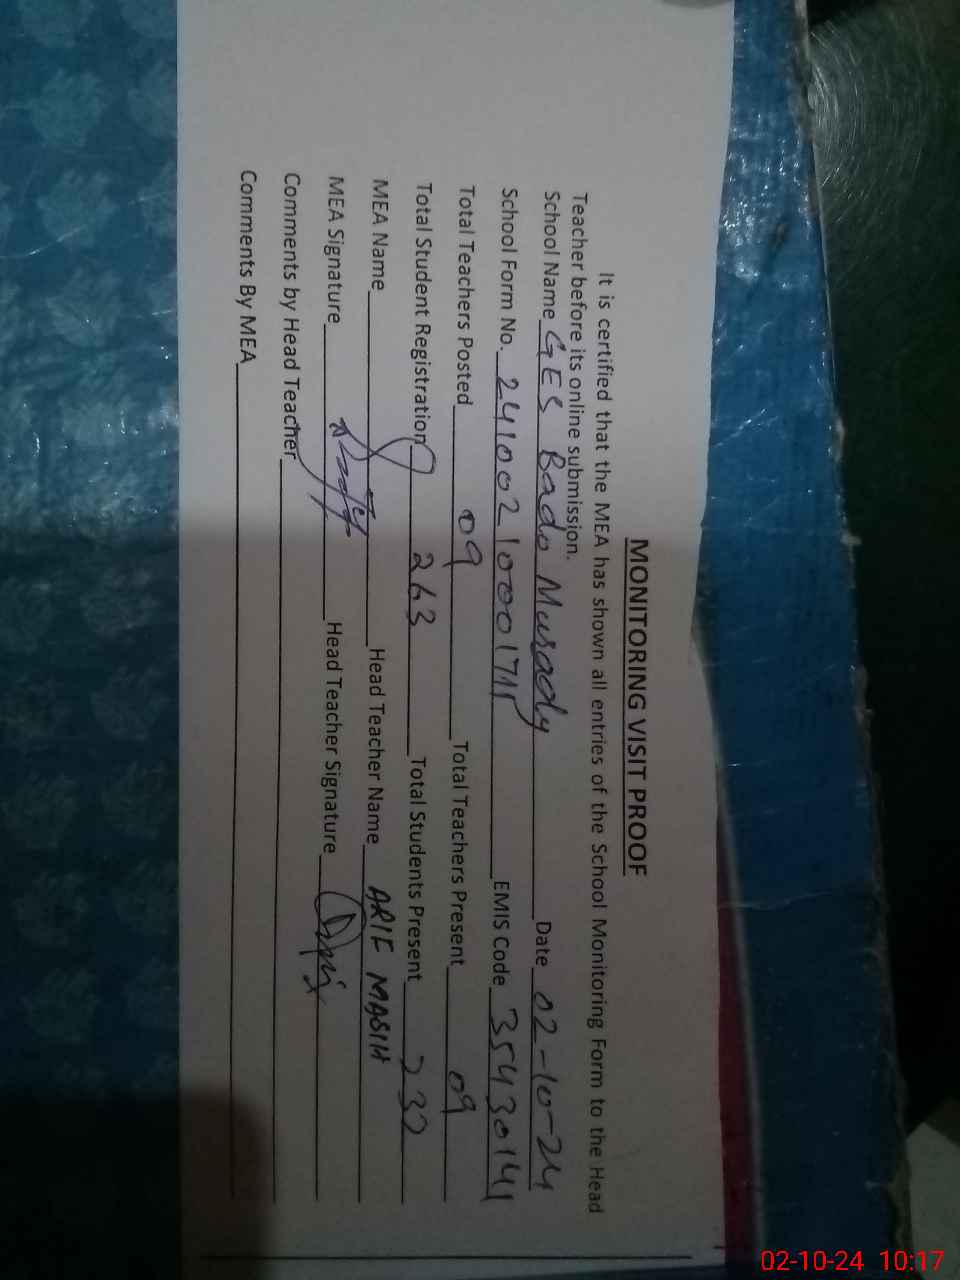 MONITORING VISIT PROOF
It is certified that the MEA has shown all entries of the School Monitoring Form to the Head
Teacher before its online submission.
School Name GES Bado Murady Date 02-10-24
School Form No. EMIS Code 35430141
Total Teachers Posted 09 Total Teachers Present 09
Total Student Registration 263 Total Students Present 232
MEA Name Head Teacher Name ARIF MASIH
MEA Signature Head Teacher Signature
Comments by Head Teacher
Comments By MEA
02-10-24 10:17